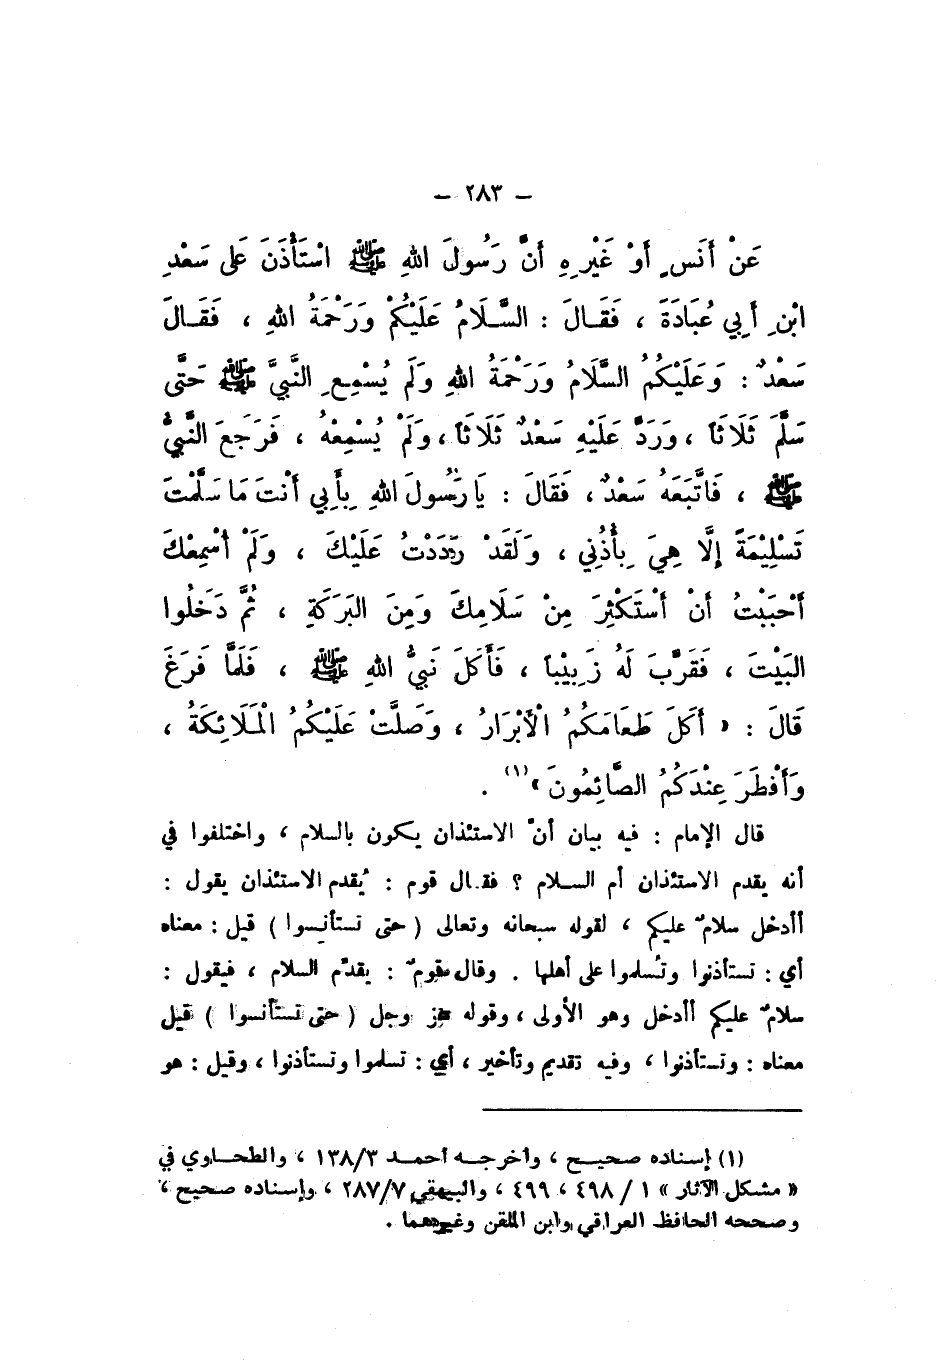 – ٢٨٣ –
عَنْ أَنَسٍ أَوْ غَيْرِهِ أَنَّ رَسُولَ اللهِ ﷺ اسْتَأْذَنَ عَلَى سَعْدِ
ابْنِ أَبِي عُبَادَةَ ، فَقَالَ : السَّلَامُ عَلَيْكُمْ وَرَحْمَةُ اللهِ ، فَقَالَ
سَعْدٌ : وَعَلَيْكُمُ السَّلَامُ وَرَحْمَةُ اللهِ وَلَم يُسْمِعِ النَّبِيَّ ﷺ حَتَّى
سَلَّمَ ثَلَاثَاً ، وَرَدَّ عَلَيْهِ سَعْدٌ ثَلَاثَاً ، وَلَمْ يُسْمِعْهُ ، فَرَجَعَ النَّبِيُّ
ﷺ ، فَاتَّبَعَهُ سَعْدٌ ، فَقَالَ : يَا رَسُولَ اللهِ بِأَبِي أَنْتَ مَا سَلَّمْتَ
تَسْلِيْمَةً إِلَّا هِيَ بِأُذُنِي ، وَلَقَدْ رَدَدْتُ عَلَيْكَ ، وَلَمْ أُسْمِعْكَ
أَحْبَبْتُ أَنْ أَسْتَكْثِرَ مِنْ سَلَامِكَ وَمِنَ البَرَكَةِ ، ثُمَّ دَخَلُوا
البَيْتَ ، فَقَرَّبَ لَهُ زَبِيْباً ، فَأَكَلَ نَبِيُّ اللهِ ﷺ ، فَلَمَّا فَرَغَ
قَالَ : « أَكَلَ طَعَامَكُمُ الْأَبْرَارُ ، وَصَلَّتْ عَلَيْكُمُ الْمَلَائِكَةُ ،
وَأَفْطَرَ عِنْدَكُمُ الصَّائِمُونَ »(١) .
قال الإمام : فيه بيان أنّ الاستئذان يكون بالسلام ، واختلفوا في
أنه يقدم الاستئذان أم السلام ؟ فقال قوم : يُقدم الاستئذان يقول :
أأدخل سلامٌ عليكم ، لقوله سبحانه وتعالى ( حتى تستأنسوا ) قيل : معناه
أي : تستأذنوا وتُسلموا على أهلها . وقال قومٌ : يقدّم السلام ، فيقول :
سلامٌ عليكم أأدخل وهو الأولى ، وقوله عز وجل ( حتى تستأنسوا ) قيل
معناه : وتستأذنوا ، وفيه تقديم وتأخير ، أي : تسلموا وتستأذنوا ، وقيل : هو
(١) إسناده صحيح ، وأخرجه أحمد ١٣٨/٣ ، والطحاوي في
« مشكل الآثار » ١ / ٤٩٨ ، ٤٩٩ ، والبيهقي ٢٨٧/٧ ، وإسناده صحيح ،
وصححه الحافظ العراقي وابن الملقن وغيرهما .